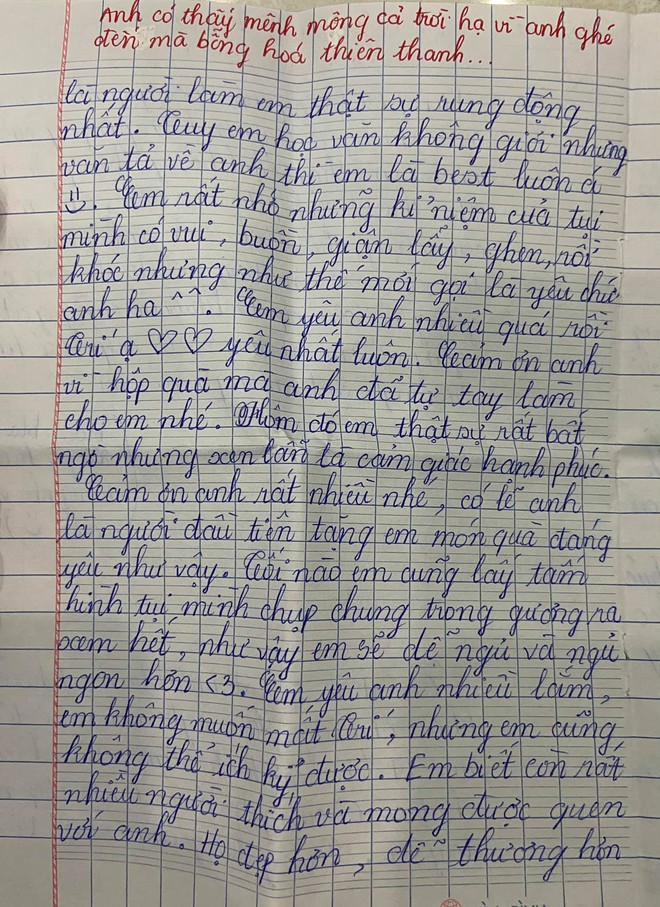 Anh có thấy mênh mông cả trời hạ vì anh ghé
đến mà bỗng hoá thiên thanh...
là người làm em thật sự rung động
nhất. Tuy em học văn không giỏi nhưng
văn tả về anh thì em là best luôn á
=)). Em rất nhớ những kỉ niệm của tụi
mình có vui, buồn, giận lẫy, ghen, rồi
khóc nhưng như thế mới gọi là yêu chứ
anh ha ^^. Em yêu anh nhiều quá rồi
ạ ♡♡ yêu nhất luôn. Cảm ơn anh
vì hộp quà mà anh đã tự tay làm
cho em nhé. Hôm đó em thật sự rất bất
ngờ nhưng xen lẫn là cảm giác hạnh phúc.
Cảm ơn anh rất nhiều nhé, có lẽ anh
là người đầu tiên tặng em món quà đáng
yêu như vậy. Tối nào em cũng lấy tấm
hình tụi mình chụp chung trong gương ra
xem hết, như vậy em sẽ dễ ngủ và ngủ
ngon hơn <3. Em yêu anh nhiều lắm,
em không muốn mất , nhưng em cũng
không thể ích kỷ được. Em biết còn rất
nhiều người thích và mong được quen
với anh. Họ đẹp hơn, dễ thương hơn